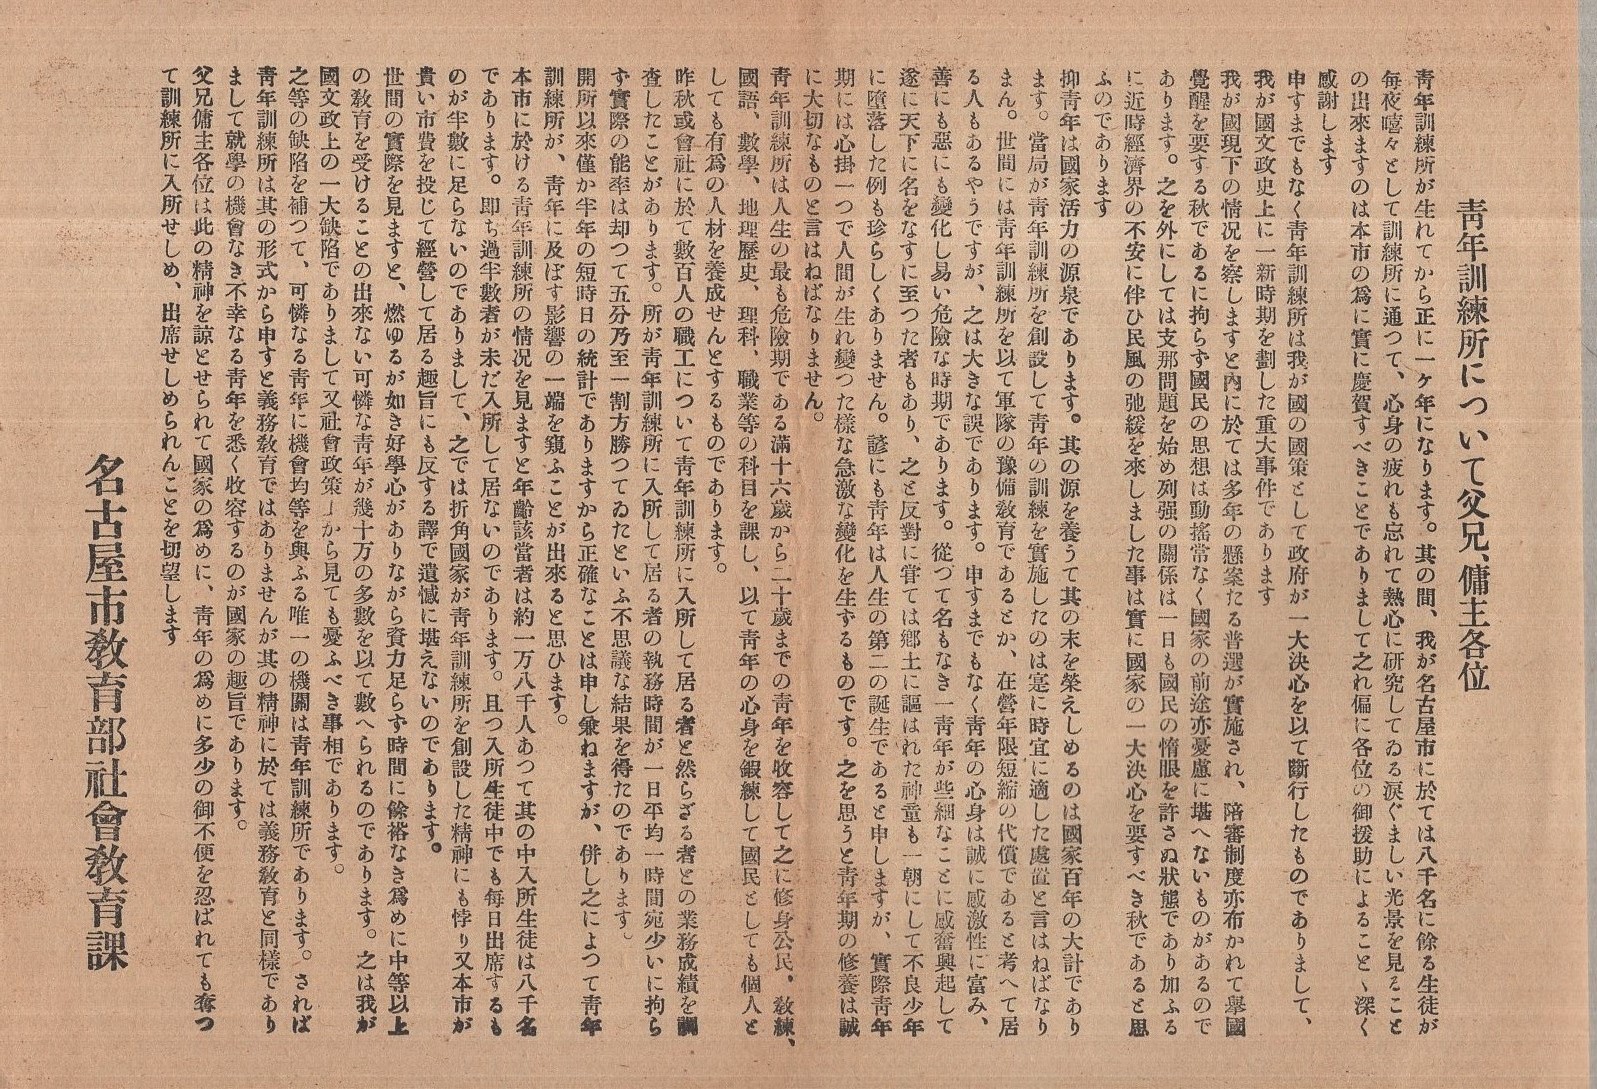 靑年訓練所について父兄、傭主各位
靑年訓練所が生れてから正に一ヶ年になります。其の間、我が名古屋市に於ては八千名に餘る生徒が
每夜嘻々として訓練所に通つて、心身の疲れも忘れて熱心に硏究してゐる淚ぐましい光景を見ること
の出來ますのは本市の爲に實に慶賀すべきことでありまして之れ偏に各位の御援助によること〻深く
感謝します
申すまでもなく靑年訓練所は我が國の國策として政府が一大決心を以て斷行したものでありまして、
我が國文政史上に一新時期を劃した重大事件であります
我が國現下の情況を察しますと內に於ては多年の懸案たる普選が實施され、陪審制度亦布かれて擧國
覺醒を要する秋であるに拘らず國民の思想は動搖常なく國家の前途亦憂慮に堪へないものがあるので
あります。之を外にしては支那問題を始め列强の關係は一日も國民の惰眠を許さぬ狀態であり加ふる
に近時經濟界の不安に伴ひ民風の弛緩を來しました事は實に國家の一大決心を要すべき秋であると思
ふのであります
抑靑年は國家活力の源泉であります。其の源を養うて其の末を榮えしめるのは國家百年の大計であり
ます。當局が靑年訓練所を創設して靑年の訓練を實施したのは寔に時宜に適した處置と言はねばなり
まん。世間には靑年訓練所を以て軍隊の豫備敎育であるとか、在營年限短縮の代償であると考へて居
る人もあるやうですが、之は大きな誤であります。申すまでもなく靑年の心身は誠に感激性に富み、
善にも惡にも變化し易い危險な時期であります。從つて名もなき一靑年が些細なことに感奮興起して
遂に天下に名をなすに至つた者もあり、之と反對に嘗ては鄕土に謳はれた神童も一朝にして不良少年
に墮落した例も珍らしくありません。諺にも靑年は人生の第二の誕生であると申しますが、實際靑年
期には心掛一つで人間が生れ變つた樣な急激な變化を生するものです。之を思うと靑年期の修養は誠
に大切なものと言はねばなりません。
靑年訓練所は人生の最も危險期である滿十六歲から二十歲までの靑年を收容して之に修身公民、敎練、
國語、數學、地理歷史、理科、職業等の科目を課し、以て靑年の心身を鍛練して國民としても個人と
しても有爲の人材を養成せんとするものであります。
昨秋或會社に於て數百人の職工について靑年訓練所に入所して居る者と然らざる者との業務成績を調
査したことがあります。所が靑年訓練所に入所して居る者の執務時間が一日平均一時間宛少いに拘ら
ず實際の能率は却つて五分乃至一割方勝つてゐたといふ不思議な結果を得たのであります。
開所以來僅か半年の短時日の統計でありますから正確なことは申し兼ねますが、併し之によつて靑年
訓練所が、靑年に及ぼす影響の一端を窺ふことが出來ると思ひます。
本市に於ける靑年訓練所の情況を見ますと年齡該當者は約一万八千人あつて其の中入所生徒は八千名
であります。卽ち過半數者が未だ入所して居ないのであります。且つ入所生徒中でも每日出席するも
のが半數に足らないのでありまして、之では折角國家が靑年訓練所を創設した精神にも悖り又本市が
貴い市費を投じて經營して居る趣旨にも反する譯で遺憾に堪えないのであります。
世間の實際を見ますと、燃ゆるが如き好學心がありながら資力足らず時間に餘裕なき爲めに中等以上
の敎育を受けることの出來ない可憐な靑年が幾十万の多數を以て數へられるのであります。之は我が
國文政上の一大缺陷でありまして又社會政策上から見ても憂ふべき事相であります。
之等の缺陷を補つて、可憐なる靑年に機會均等を與ふる唯一の機關は靑年訓練所であります。されば
靑年訓練所は其の形式から申すと義務敎育ではありませんが其の精神に於ては義務敎育と同樣であり
まして就學の機會なき不幸なる靑年を悉く收容するのが國家の趣旨であります。
父兄傭主各位は此の精神を諒とせられて國家の爲めに、靑年の爲めに多少の御不便を忍ばれても奪つ
て訓練所に入所せしめ、出席せしめられんことを切望します
名古屋市敎育部社會敎育課